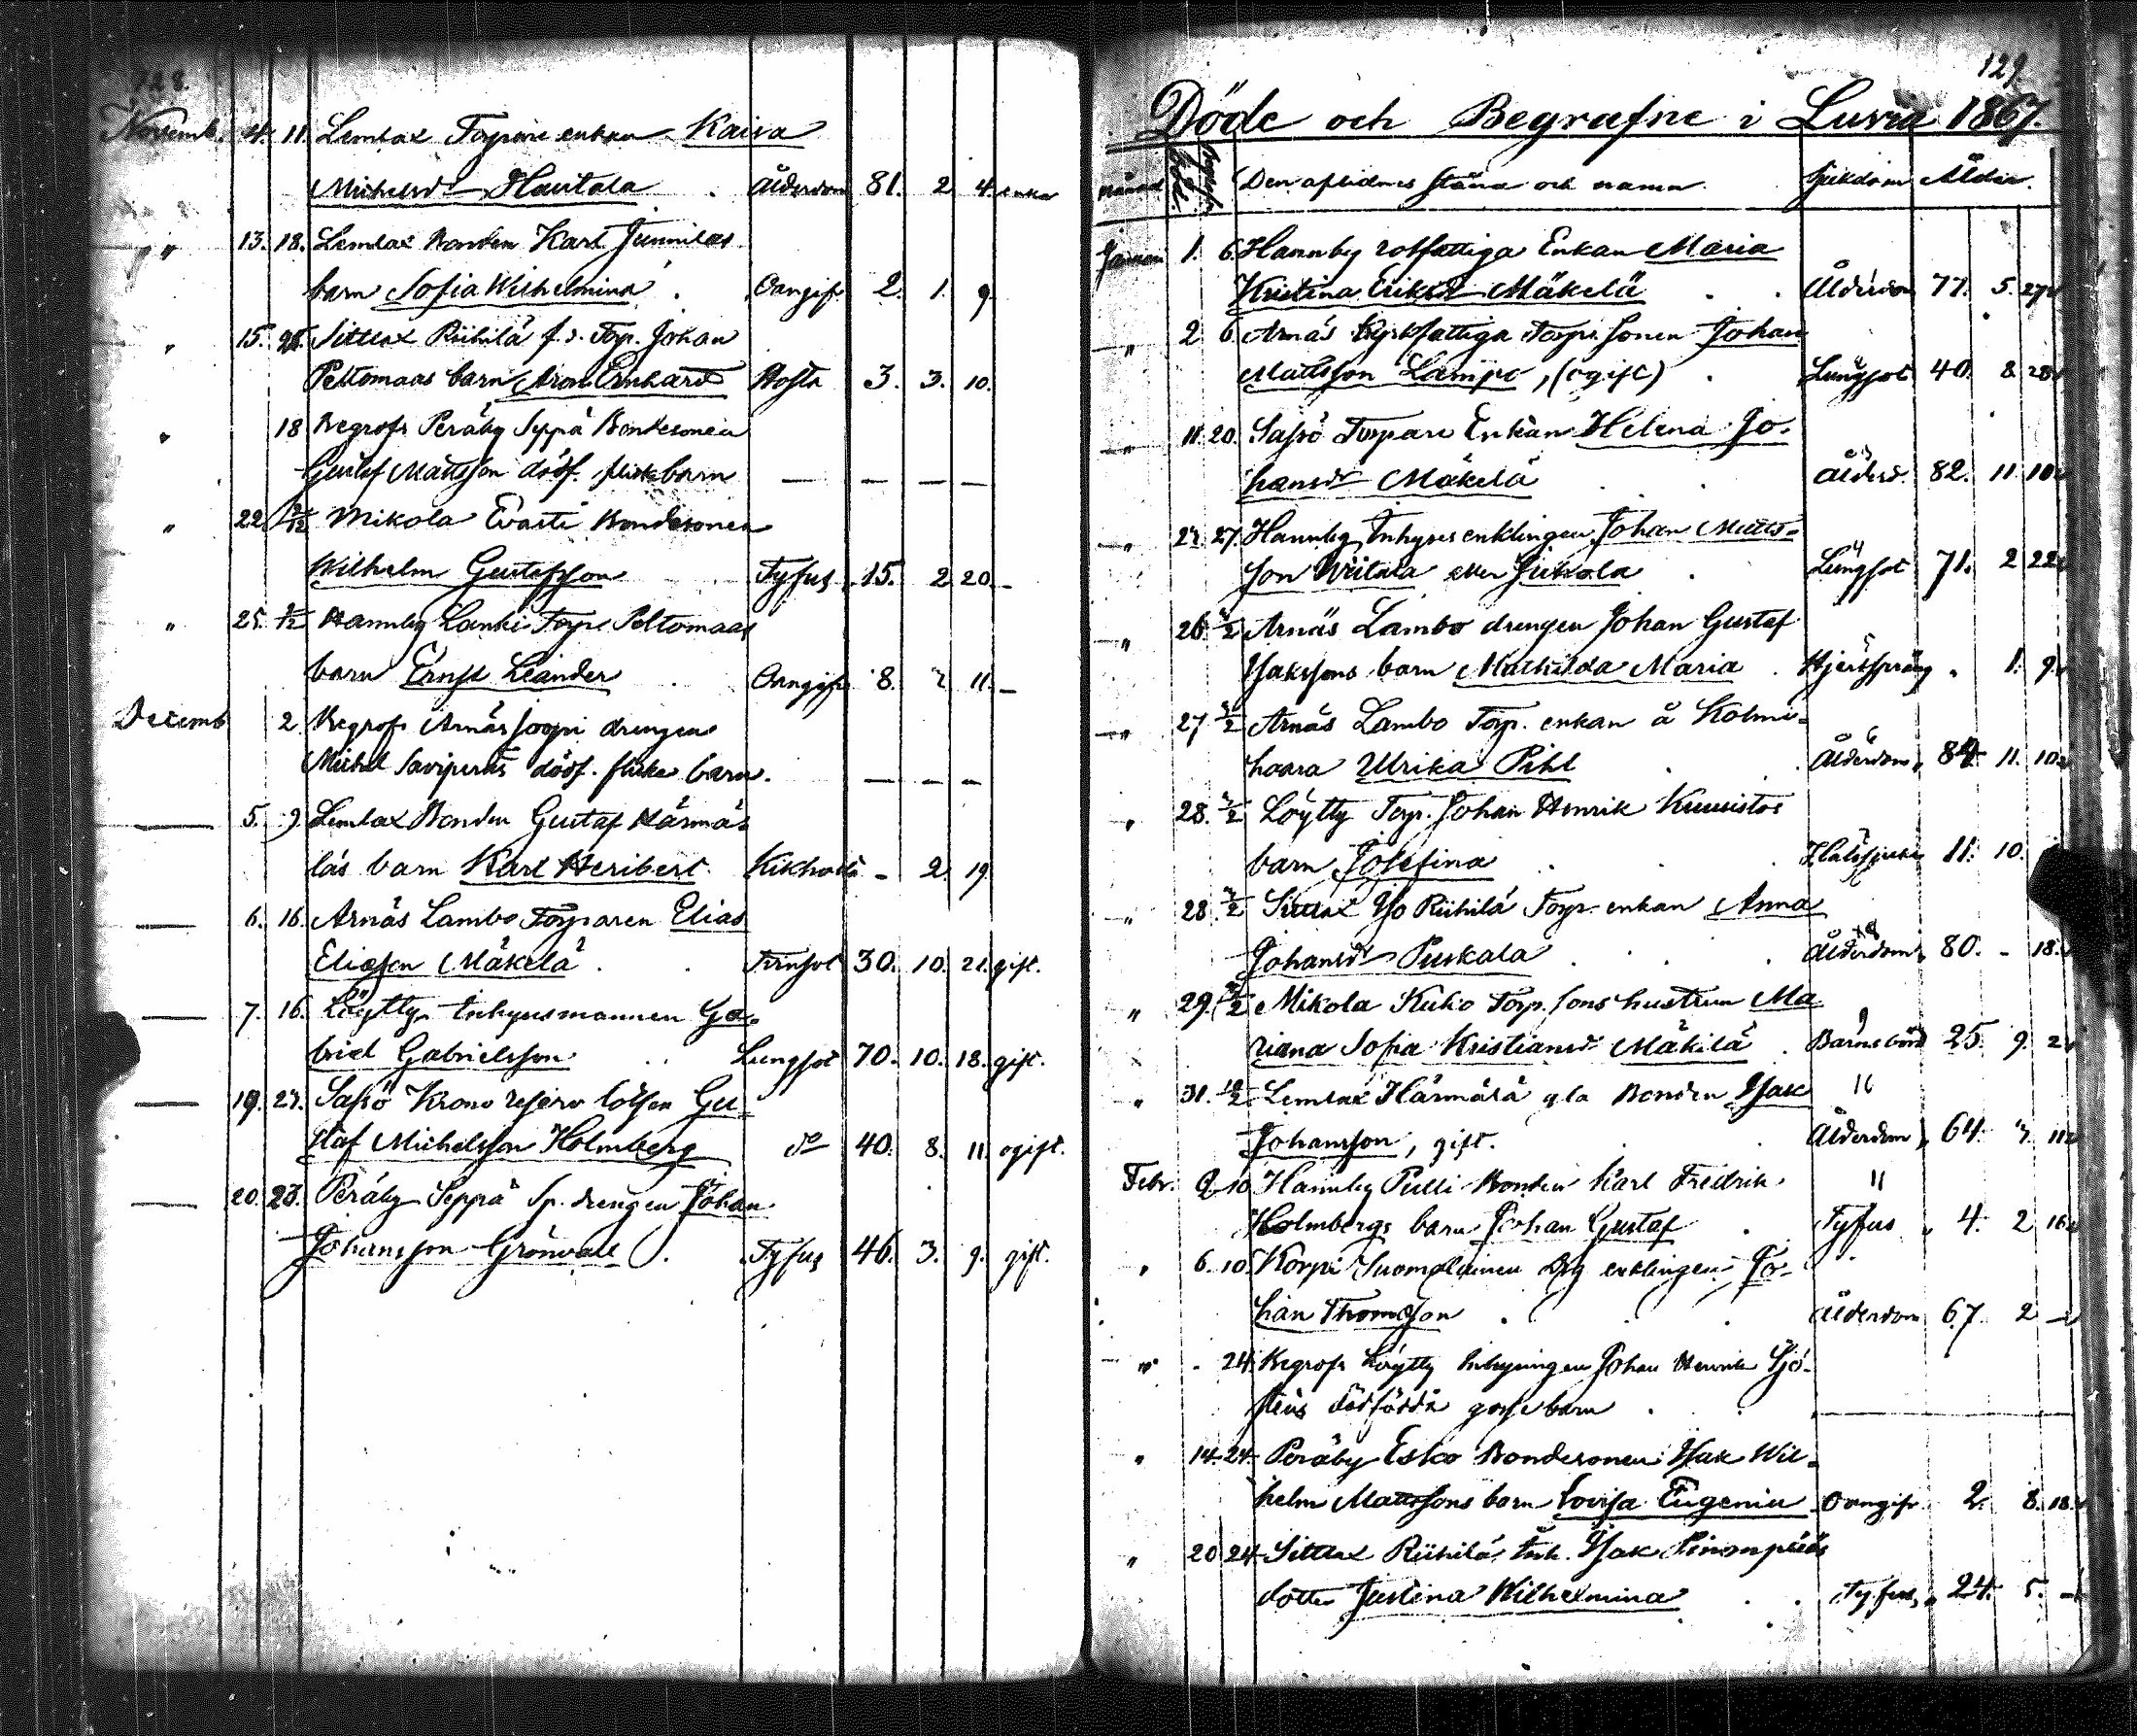 128.
Novemb. 4. 11. Lemlax Torpare enkan Kaisa
Michelsd Hautala . Ålderdom 81. 2 4. enka
" 13. 18. Lemlax Bonden Karl Junnilas
barn Sofia Wilhelmina . Oangifv 2. 1. 9.
" 15. Sittlax Riihilä f. d. Torp. Johan
Peltomaas barn Aron Ernhard Hosta 3. 3. 10.
" 18 Begrofs Peräby Seppä Bondesonen
Gustaf Mattsson dödf. flickebarn — — — —
" 22. 2/12 Mikola Evasti Bondesonen
Wilhelm Gustafsson Tyfus 15. 2 20. -
" 25. 2/12 Hannby Lanki Torp. Peltomaas
barn Ernst Leander . Oangifv 8. 2 11. -
Decemb 2. Begrofs Arnäs Soopi drengens
Michel Saviperäs dödf. flicke barn. — — —
— 5. 9. Lemlax Bonden Gustaf Härmä-
läs barn Karl Heribert. Kikhosta - 2. 19.
— 6. 16. Arnäs Lambo Torparen Elias
Eliasson Mäkelä . . Tvinsot 30. 10. 21. gift.
— 7. 16. Löytty Inhysesmannen Ga-
briel Gabrielsson . . Lungsot 70. 10. 18. gift.
— 19. 23. Sassö Krono reserv lotsen Gu-
staf Michelsson Holmberg do 40. 8. 11. ogift.
— 20. 23. Peräby Seppä Sp. drengen Johan
Johansson Grönvall . Tyfus 46. 3. 9. gift.
129.
Döde och Begrafne i Luvia 1867.
månad Död. Begrafn. Den aflidnes stånd och namn. Sjukdom Ålder.
Januari 1. 6. Hannby rotfattiga Enkan Maria
Kristina Eriksd Mäkelä . . Ålderdom 77. 5. 27
" 2 6. Arnäs Kyrkfattiga Torpe sonen Johan
Mattsson Lampo, (ogift) . Lungsot 40. 8 28
" 11. 20. Sassö Torpare Enkan Helena Jo-
hansd Mäkelä . . Ålderd. 82. 11. 10
" 27. Hannby Inhyses enklingen Johan Matts-
son Wiitala eller Jukola . Lungsot 71. 2 22
" 26. 3/2 Arnäs Lambo drengen Johan Gustaf
Isakssons barn Mathilda Maria . Hjertsprång " 1. 9
" 27 3/2 Arnäs Lambo Torp. enkan å Kolmi-
haara Ulrika Pihl . . Ålderdom 84 11. 10
" 28. 3/2 Löytty Torp. Johan Henrik Kuusistos
barn Josefina . . Halssjuka 11. 10.
" 28 3/2 Sittlax Iso Riihilä Torp. enkan Anna
Johansd Puskala . . . Ålderdom 80. - 18.
" 29. 3/2 Mikola Kuko Torp. sons hustrun Ma
riana Sofia Kristiansd Mäkilä . Barnsbörd 25 9. 2
" 31. 10/2 Lemlax Härmälä gla Bonden Isak
Johansson, gift. . Ålderdom 64. 3. 11
Febr. 2 10 Hannby Pulli Bonden Karl Fredrik
Holmbergs barn Johan Gustaf . Tyfus " 4. 2 16
" 6. 10. Korpi Suomalainen enklingen Jo-
han Thomasson . . . Ålderdom 67 2 -
" - 24. Begrofs Löytty Inhysingen Johan Henrik Sjö-
steus dödfödda gosse barn . . —
" 14. 24. Peräby Esko Bondesonen Isak Wil-
helm Mattssons barn Lovisa Eugenia Oangifv 2. 8. 18.
" 20 24. Sittlax Riihilä Inh. Isak
dotter Justina Wilhelmina . . Tyfus 24. 5. -